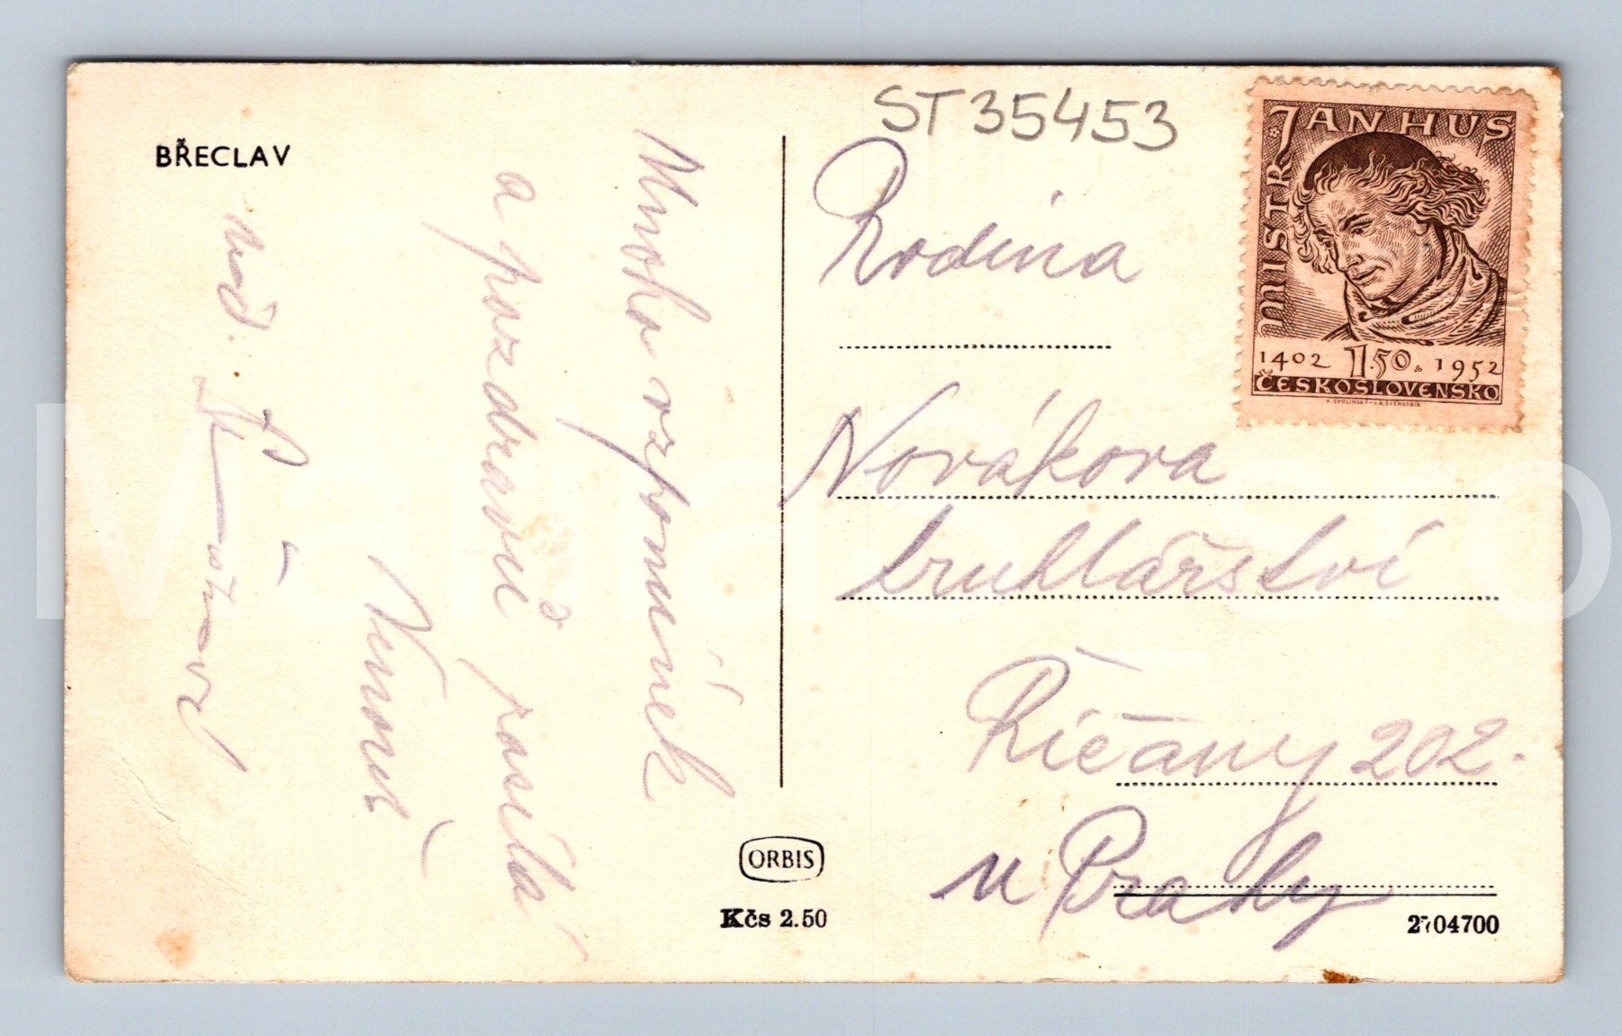 BŘECLAV
ST35453
MISTR JAN HUS
1402 1.50 1952
ČESKOSLOVENSKO
Mnoho vzpomínek
a pozdravů posílá
Rodina
Novákova
truhlářství
Říčany 202.
u Prahy
ORBIS
Kčs 2.50
2704700